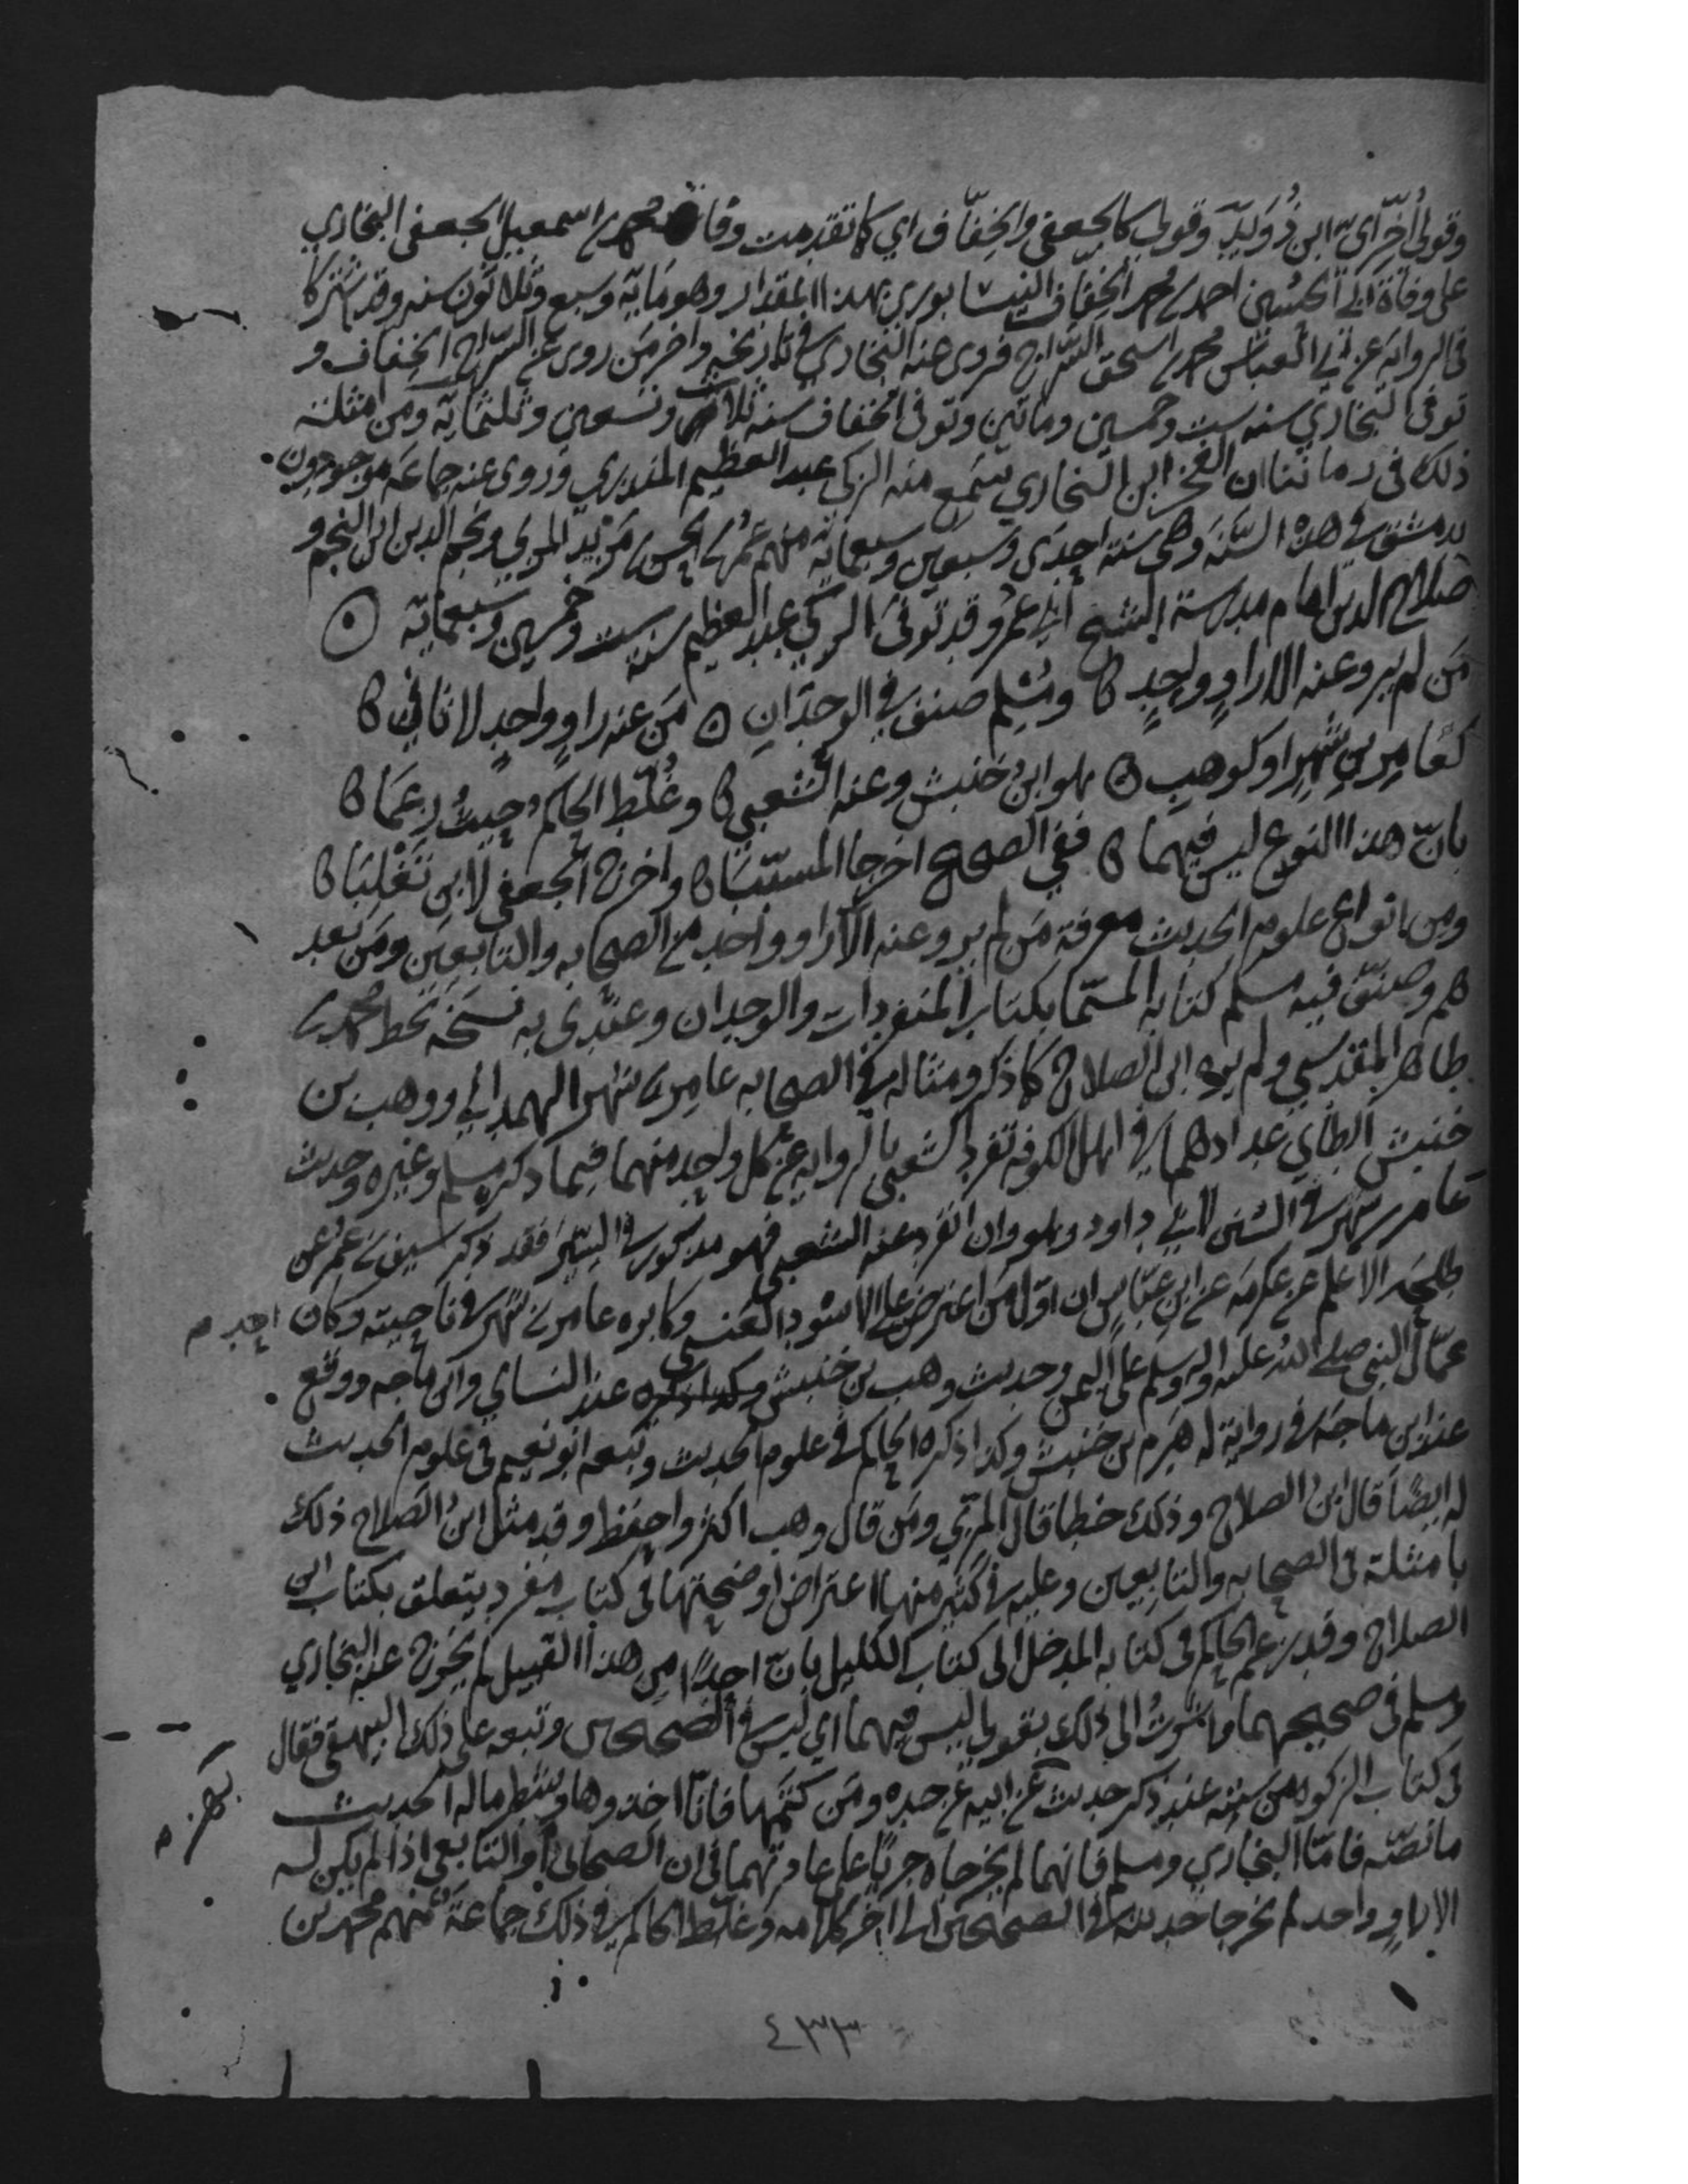 وقولي أُخِّراي ابن دُوَيدٍ وقولي كالجعفي والخفّاف اي كا تقدمت وفاة محمد بن اسمعيل الجعفي البخاري
على وفاة ابي الحسين احمد بن محمد الخفاف النيسابوري بهذا المقدار وهو ماية وسبع وثلاثون سنه وقد اشتركا
في الرواية عن ابي العباس محمد بن اسحق السراج فروى عنه البخاري في تاريخه واخر من روى عن السراج الخفاف و
توفي البخاري سنه ست وخمسين وماتين وتوفي الخفاف سنه ثلاث وتسعين وثلثماية ومن امثلته
ذلك في زماننا ان الفخر ابن البخاري سمع منه الزكي عبد العظيم المنذري وروى عنه جماعة موجودون
بدمشق في هذه السَّنة وهي سنة احدى وسبعين وسبعماية منهم عُمر بن الحسن بن مَزْيد المزي ونجم الدين ابن النجم و
صلاح الدين امام مدرسة الشيخ ابي عمر وقد توفي الزكي عبد العظيم سنة ست وخمسين وسبعماية
مَن لم يرو عنه الا راوٍ واحدٍ ومسلم صنف في الوحدانِ مَن عنه راوٍ واحدٍ لا ثاني
كعامر بن شهرٍ او كوهبِ هو ابن خنبش وعنه الشعبي وغُلّط الحاكم حيثُ زعما
بانّ هذا النوع ليس فيهما ففي الصحيح اخرجا المسيّبا واخرج الجعفي لابن تغلبا
ومن انواع علوم الحديث معرفة مَن لم يرو عنه الا راو واحد من الصحابه والتابعين ومن بعد
هم وصنّف فيه مسلم كتابه المسمّا بكتاب المنفردات والوحدان وعندي به نسخة بخط محمد بن
طاهر المقدسي ولم يره ابن الصلاح كا ذكر ومثاله في الصحابه عامر بن شهر الهمداني ووهب بن
خنبش الطاي عدادهما في اهل الكوفه تفرد الشعبي بالروايه عن كل واحد منهما فيما ذكره مسلم وغيره وحديث
عامر بن شهر في السنن لابي داود وهو وان انفرد عنه الشعبي فهو مذكور في السّير فقد ذكر سيف بن عمر عن
طلحة الاعلم عن عكرمة عن ابن عبّاس ان اوّل من اعترض على الاسود العنسي وكابره عامر بن شهر في ناحيته وكان احد م
عمّال النبي صلى الله عليه واله وسلم على اليمن وحديث وهب بن خنبش عند النساي وابن ماجه ووقع
عند ابن ماجة في رواية له هَرِم بن خنبش وكذا ذكره الحاكم في علوم الحديث وتبعه ابو نعيم في علوم الحديث
له ايضًا قال ابن الصلاح وذلك خطا قال المزي ومَن قال وهب اكثر واحفظ وقد مثل ابن الصلاح ذلك
بامثلة في الصحابه والتابعين وعليه في كثير منها اعتراض اوضحتها في كتاب مفرد يتعلق بكتاب ابن
الصلاح وقد زعم الحاكم في كتابه المدخل الى كتاب الاكليل بانّ احدًا من هذا القبيل لم يخرج عنه البخاري
ومسلم في صحيحيهما واشرتُ الى ذلك بقولي ليس فيهما اي ليس في الصحيحين وتبعه على ذلك البيهقي فقال
في كتاب الزكوه من سننه عند ذكر حديث بهز عن ابيه عن جده ومن كتمها فانّا اخذوها وشطر ماله الحديث
ما نصّه فامّا البخاري ومسلم فانهما لم يخرجاه جريًا على عادتهما في ان الصحابي او التابعي اذا لم يكن له
الا راوٍ واحد لم يخرجا حديثه في الصحيحين الى اخر كلامه وغلّط الحاكم في ذلك جماعة منهم محمد بن
٤٣٣